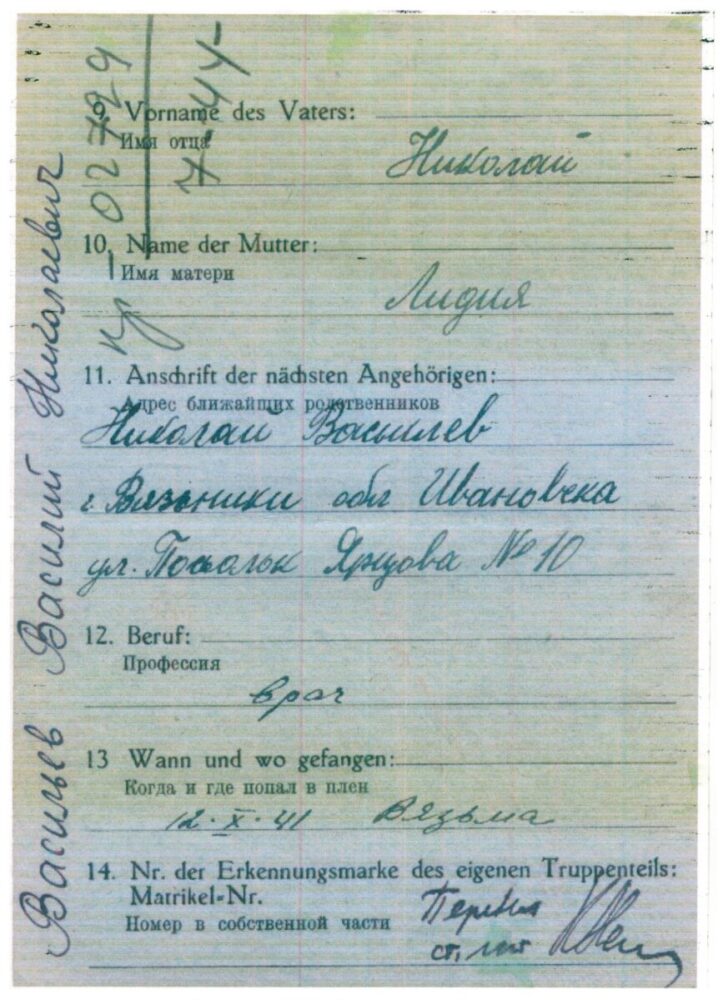 02729
7-44
9. Vorname des Vaters:
Имя отца
Николай
10. Name der Mutter:
Имя матери
Лидия
11. Anschrift der nächsten Angehörigen:
Адрес ближайщих родственников
Николай Василев
г. Вязники обл Ивановска
ул. Ярцова № 10
12. Beruf:
Профессия
врач
13 Wann und wo gefangen:
Когда и где попал в плен
12·X·41 Вязьма
14. Nr. der Erkennungsmarke des eigenen Truppenteils:
Matrikel-Nr.
Номер в собственной части
ст.
Васильев Василий Николаевич